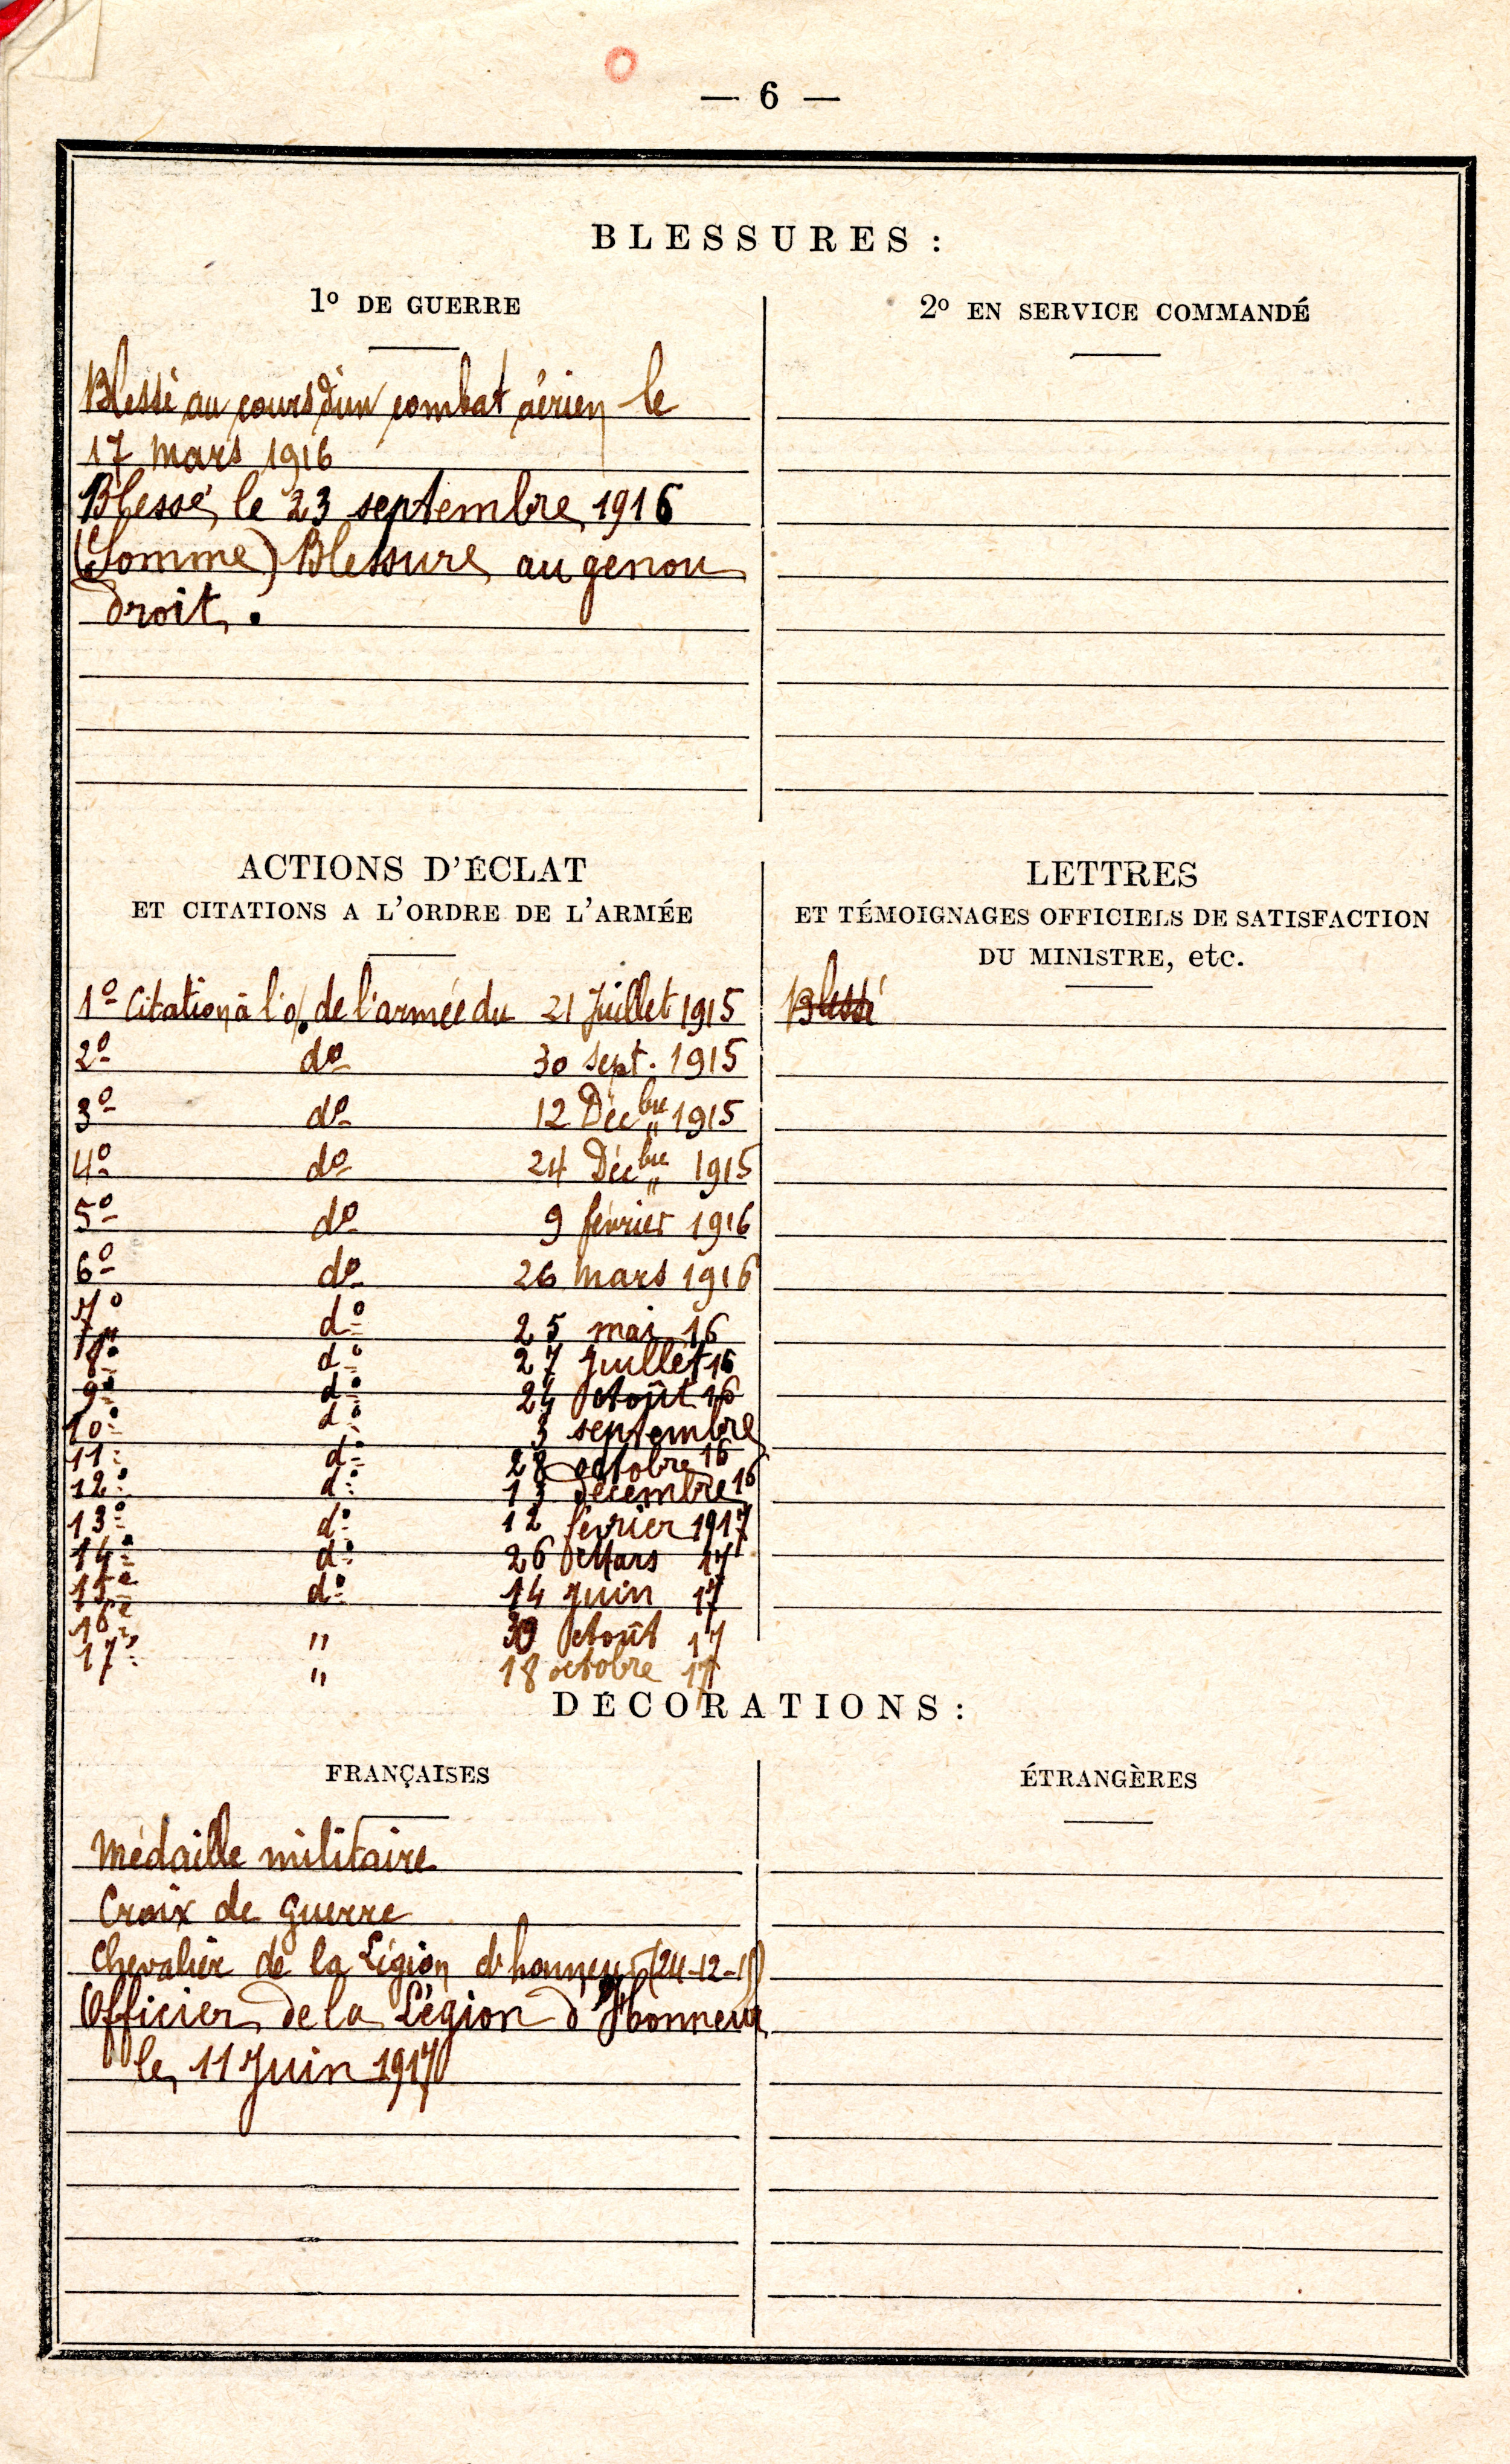 — 6 —
BLESSURES :
1º DE GUERRE
Blessé au cours d'un combat aérien le
17 mars 1916
Blessé le 23 septembre 1916
(Somme) Blessure au genou
droit.
2º EN SERVICE COMMANDÉ
ACTIONS D'ÉCLAT
ET CITATIONS A L'ORDRE DE L'ARMÉE
1º Citation à l'o/. de l'armée du 21 Juillet 1915
2º dº 30 sept. 1915
3º dº 12 Décbre 1915
4º dº 24 Décbre 1915
5º dº 9 février 1916
6º dº 26 mars 1916
7º dº 25 mai 16
8º dº 27 Juillet 16
9º dº 24 Août 16
10º dº 3 septembre
11º dº 28 octobre 16
12º dº 13 décembre 16
13º dº 12 février 1917
14º dº 26 Mars 17
15e dº 14 Juin 17
16e " Août 17
17º " 18 octobre 17
LETTRES
ET TÉMOIGNAGES OFFICIELS DE SATISFACTION
DU MINISTRE, etc.
Blessé
DÉCORATIONS :
FRANÇAISES
Médaille militaire
Croix de Guerre
Chevalier de la Légion d'honneur (24-12-15)
Officier de la Légion d'Honneur
le 11 Juin 1917
ÉTRANGÈRES